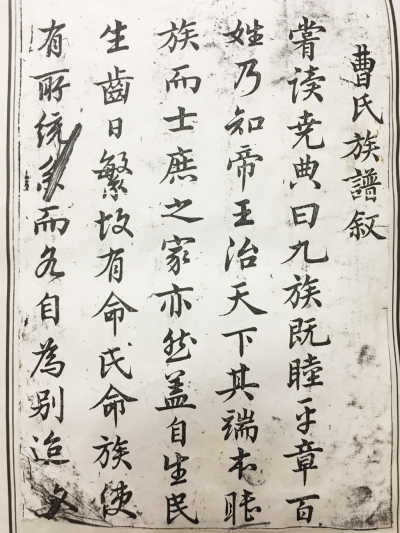 曹氏族譜叙
嘗读尭典曰九族既睦平章百
姓乃知帝王治天下其端本睦
族而士庶之家亦然盖自生民
生齒日繁故有命氏命族使
有所统系而各自為别迨